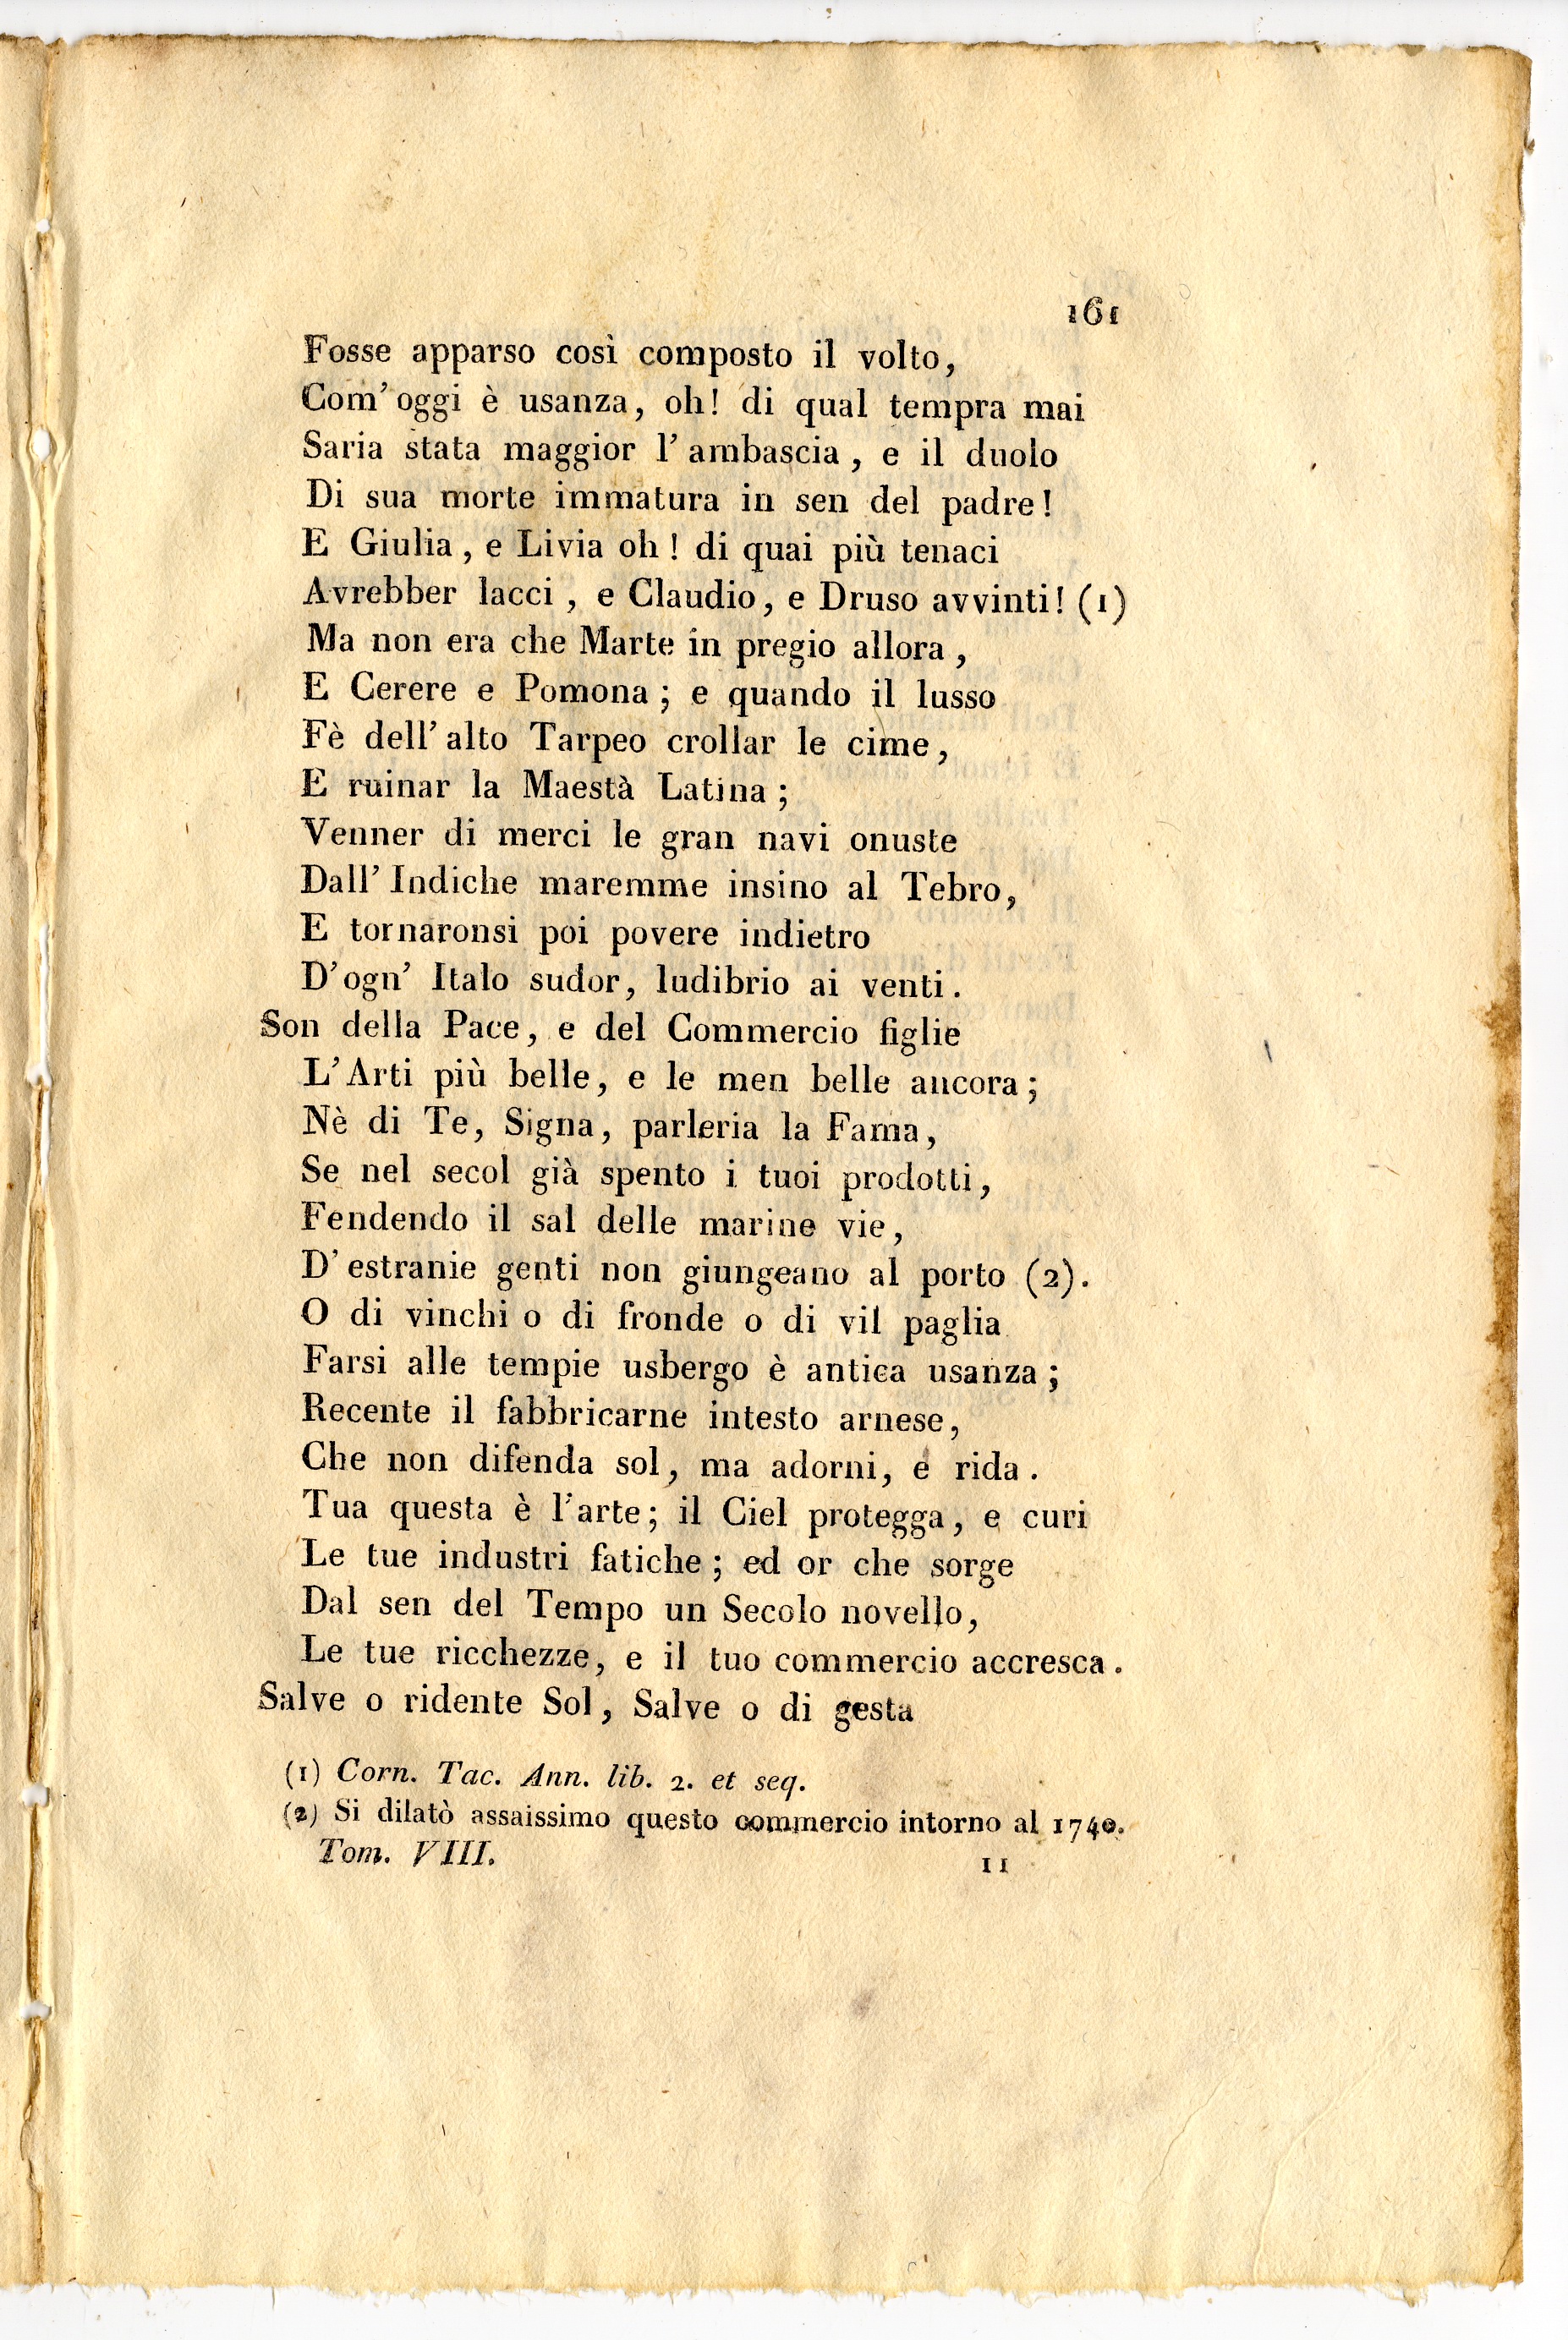 161
Fosse apparso così composto il volto,
Com' oggi è usanza, oh! di qual tempra mai
Saria stata maggior l' ambascia, e il duolo
Di sua morte immatura in sen del padre!
E Giulia, e Livia oh! di quai più tenaci
Avrebber lacci, e Claudio, e Druso avvinti! (1)
Ma non era che Marte in pregio allora,
E Cerere e Pomona; e quando il lusso
Fè dell' alto Tarpeo crollar le cime,
E ruinar la Maestà Latina;
Venner di merci le gran navi onuste
Dall' Indiche maremme insino al Tebro,
E tornaronsi poi povere indietro
D' ogn' Italo sudor, ludibrio ai venti.
Son della Pace, e del Commercio figlie
L' Arti più belle, e le men belle ancora;
Nè di Te, Signa, parleria la Fama,
Se nel secol già spento i tuoi prodotti,
Fendendo il sal delle marine vie,
D' estranie genti non giungeano al porto (2).
O di vinchi o di fronde o di vil paglia
Farsi alle tempie usbergo è antica usanza;
Recente il fabbricarne intesto arnese,
Che non difenda sol, ma adorni, e rida.
Tua questa è l'arte; il Ciel protegga, e curi
Le tue industri fatiche; ed or che sorge
Dal sen del Tempo un Secolo novello,
Le tue ricchezze, e il tuo commercio accresca.
Salve o ridente Sol, Salve o di gesta
(1) Corn. Tac. Ann. lib. 2. et seq.
(2) Si dilatò assaissimo questo commercio intorno al 1740.
Tom. VIII. 11